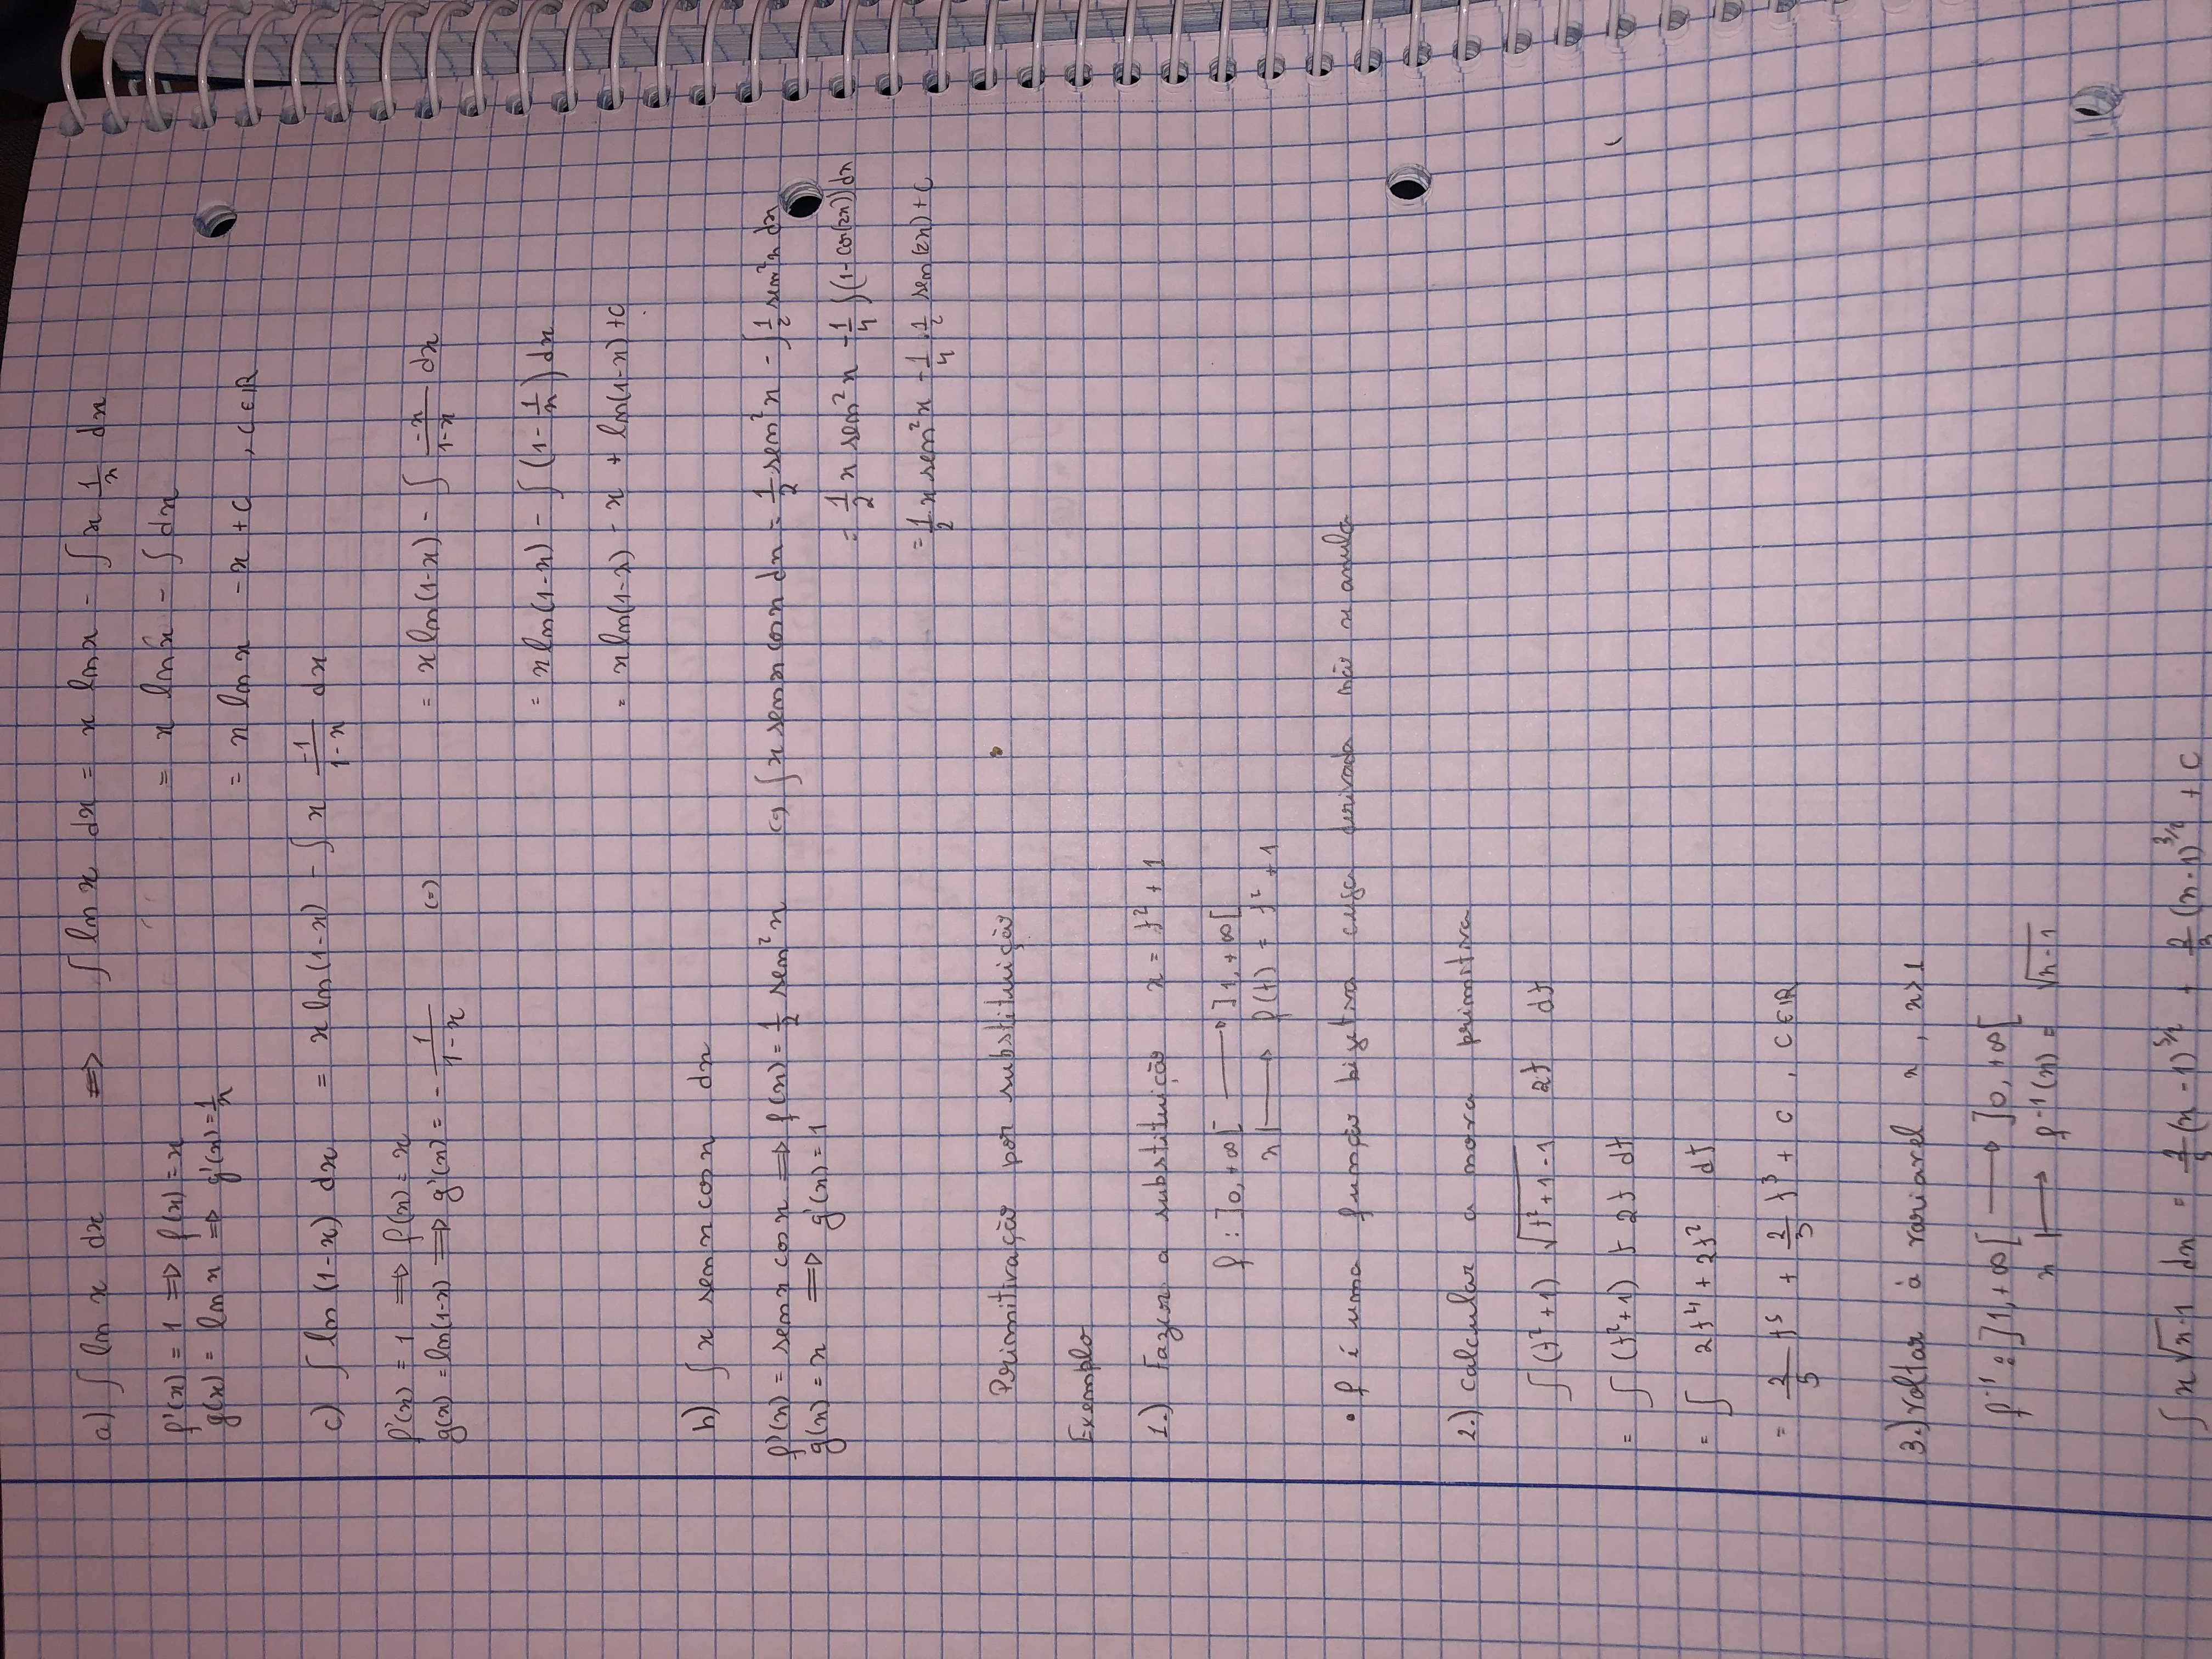 a) ∫ ln x dx ⟹ ∫ ln x dx = x ln x - ∫ x 1/x dx
f'(x) = 1 ⟹ f(x) = x
= x ln x - ∫ dx
g(x) = ln x ⟹ g'(x) = 1/x
= x ln x - x + C , C ∈ ℝ
c) ∫ ln (1-x) dx = x ln(1-x) - ∫ x -1/(1-x) dx
f'(x) = 1 ⟹ f(x) = x
g(x) = ln(1-x) ⟹ g'(x) = - 1/(1-x) (=) = x ln(1-x) - ∫ -x/(1-x) dx
= x ln(1-x) - ∫ (1 - 1/x) dx
= x ln(1-x) - x + ln(1-x) + C
h) ∫ x sen x cos x dx
f'(x) = sen x cos x ⟹ f(x) = 1/2 sen² x (=) ∫ x sen x cos x dx = 1/2 sen² x - ∫ 1/2 sen² x dx
g(x) = x ⟹ g'(x) = 1
= 1/2 x sen² x - 1/4 ∫ (1 - cos(2x)) dx
= 1/2 x sen² x - 1/4 . 1/2 sen(2x) + C
Primitivação por substituição
Exemplo
1.) Fazer a substituição x = t² + 1
f : ]0, +∞[ ⟶ ]1, +∞[
x ⟼ f(t) = t² + 1
• f é uma função bijetiva cuja derivada não se anula
2.) calcular a nova primitiva
∫ (t² + 1) √(t² + 1 - 1) 2t dt
= ∫ (t² + 1) t 2t dt
= ∫ 2t⁴ + 2t² dt
= 2/5 t⁵ + 2/3 t³ + C , C ∈ ℝ
3.) voltar à variavel x , x > 1
f⁻¹ : ]1, +∞[ ⟶ ]0, +∞[
x ⟼ f⁻¹(x) = √(x-1)
∫ x √(x-1) dx = 2/5 (x-1)^5/2 + 2/3 (x-1)^3/2 + C